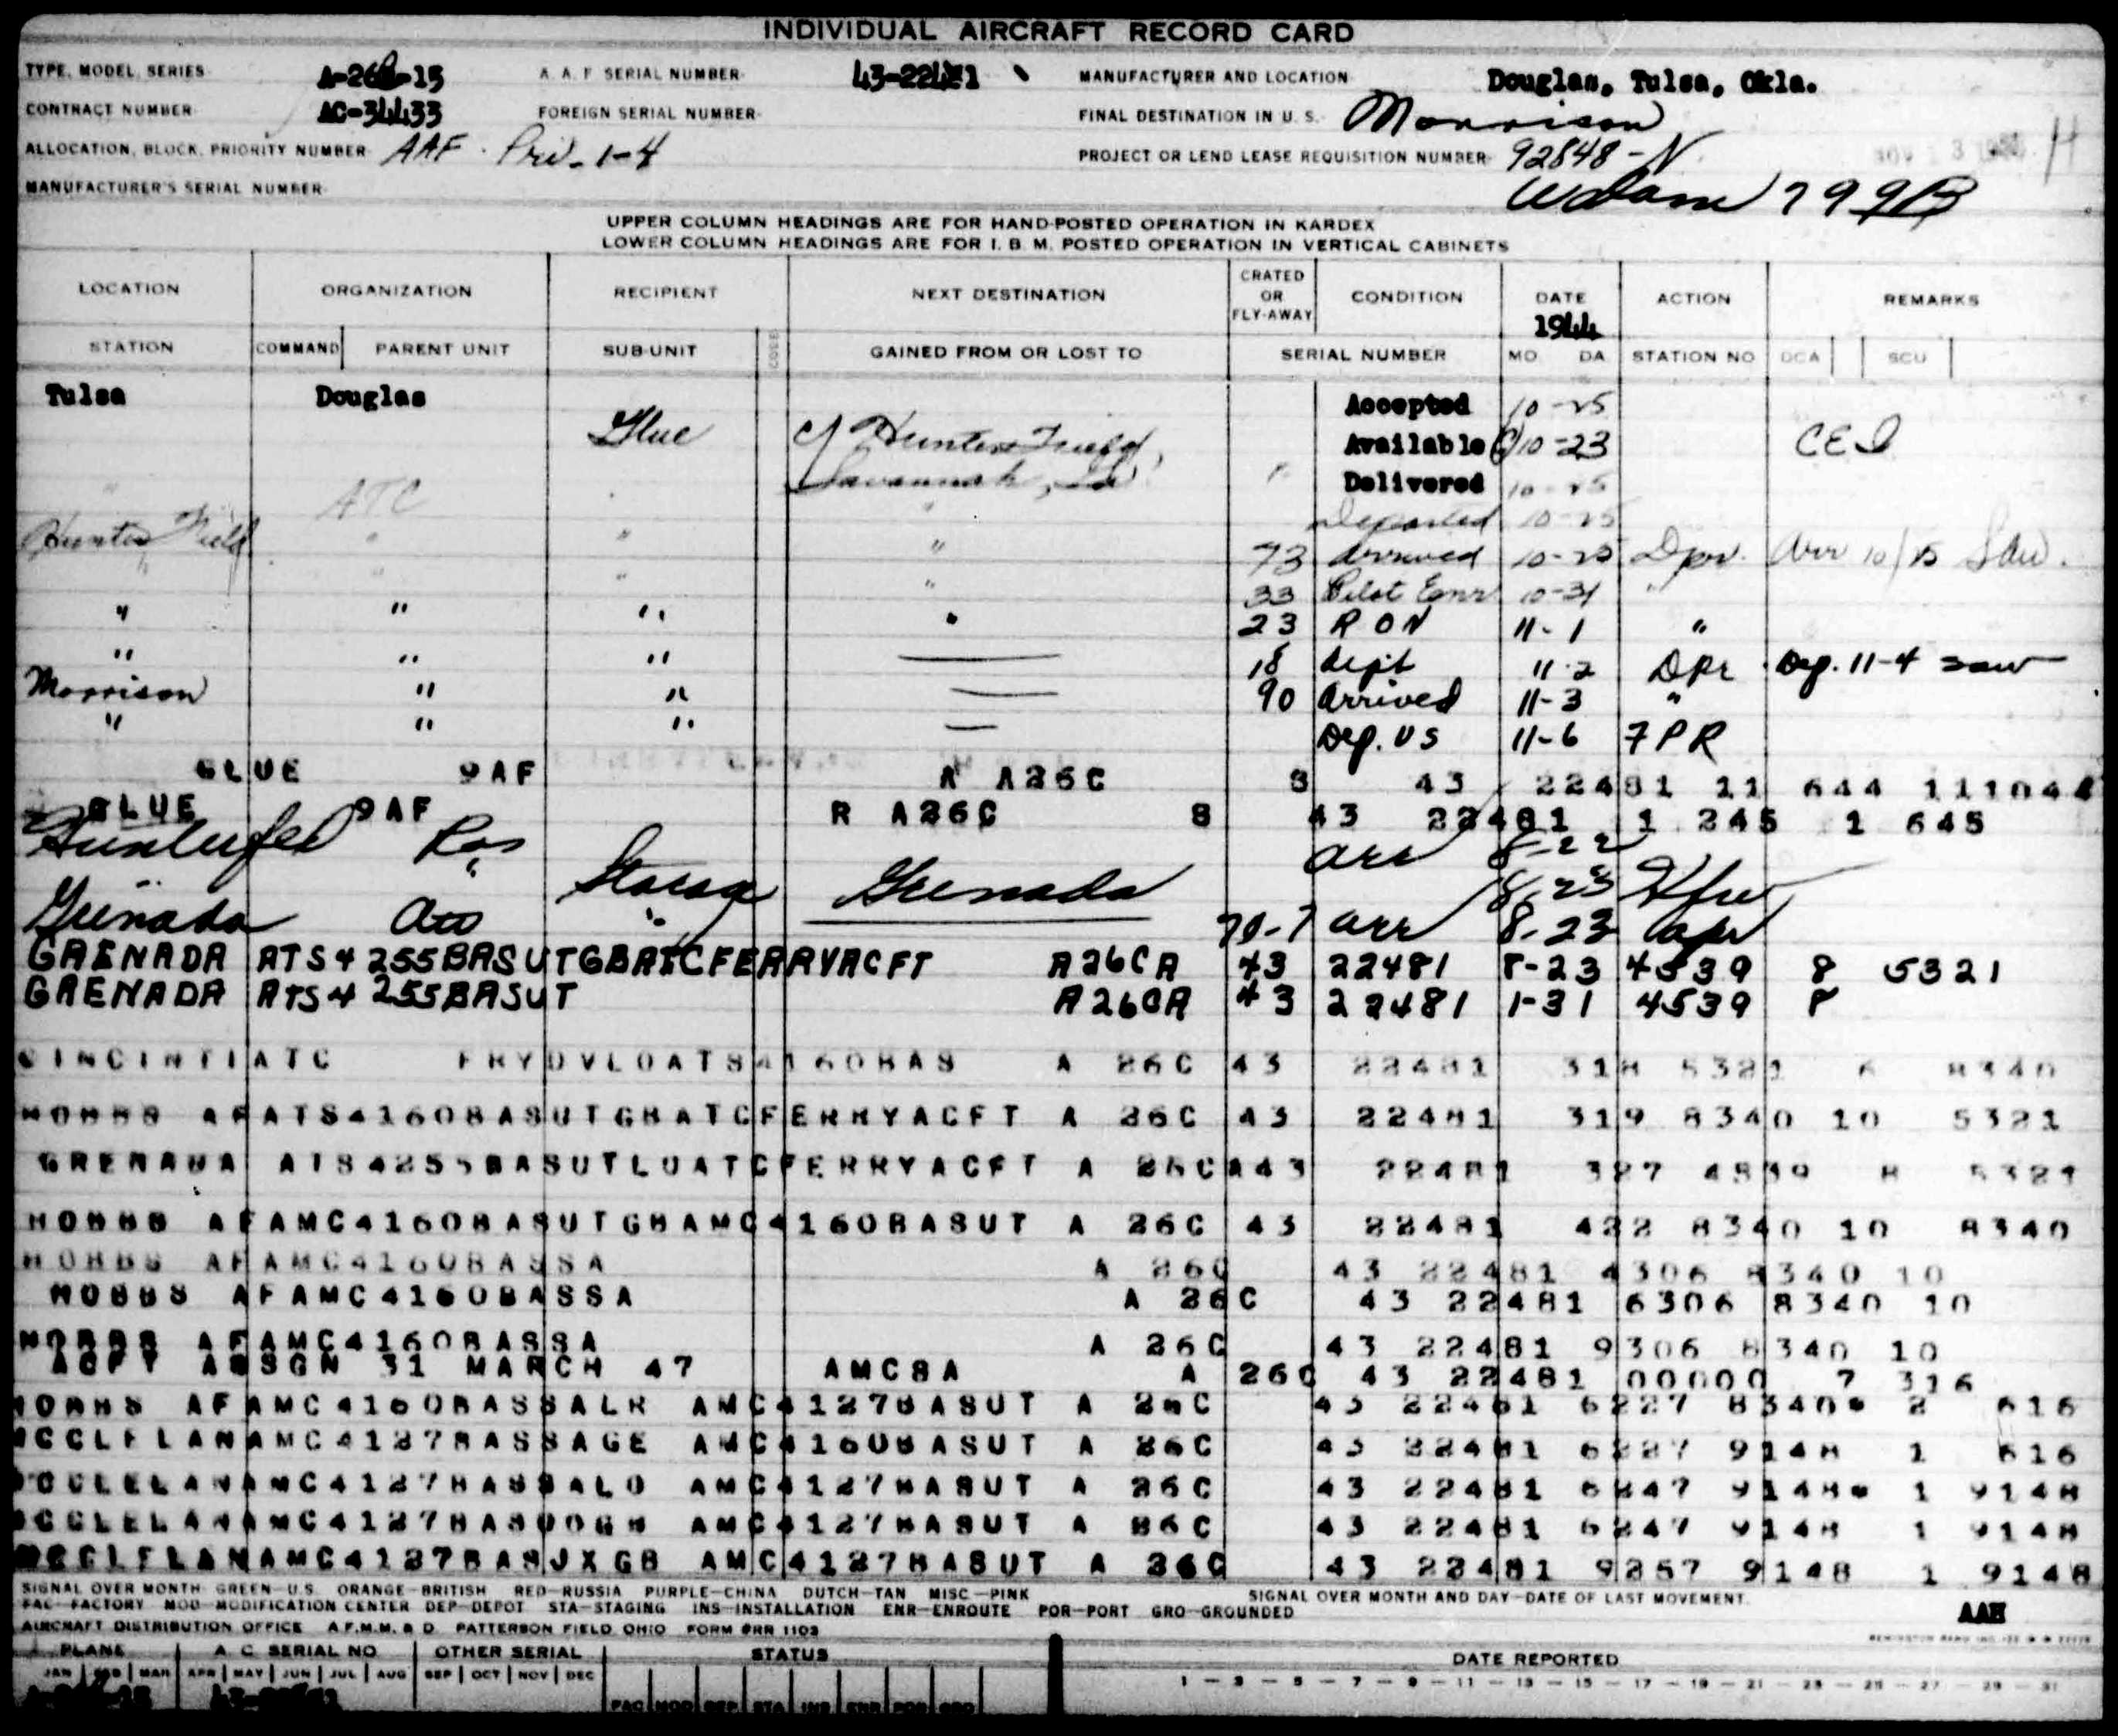 INDIVIDUAL AIRCRAFT RECORD CARD
TYPE, MODEL, SERIES A-26C-15 A. A. F. SERIAL NUMBER 43-22481 MANUFACTURER AND LOCATION Douglas, Tulsa, Okla.
CONTRACT NUMBER AC-34433 FOREIGN SERIAL NUMBER FINAL DESTINATION IN U. S. Morrison
ALLOCATION, BLOCK, PRIORITY NUMBER AAF Pri. 1-4 PROJECT OR LEND LEASE REQUISITION NUMBER 92848-N
MANUFACTURER'S SERIAL NUMBER 799B
UPPER COLUMN HEADINGS ARE FOR HAND-POSTED OPERATION IN KARDEX
LOWER COLUMN HEADINGS ARE FOR I. B. M. POSTED OPERATION IN VERTICAL CABINETS
LOCATION ORGANIZATION RECIPIENT NEXT DESTINATION CRATED OR FLY-AWAY CONDITION DATE 1944 ACTION REMARKS
STATION COMMAND PARENT UNIT SUB-UNIT GAINED FROM OR LOST TO SERIAL NUMBER MO. DA. STATION NO DCA SCU
Tulsa Douglas Accepted 10-25
Glue Hunter Field, Available 10-23 CEI
" ATC " Savannah, Ga Delivered 10-25
" Departed 10-25
Hunter Field " " " 73 Arrived 10-25 Dpr. Arr 10/25 Sav.
" " " " 33 Pilot Emr 10-31 "
" " " " 23 RON 11-1 "
" " " 18 dept 11-2 DPR Dep. 11-4 saw
Morrison " " 90 Arrived 11-3 "
" " " Dep. US 11-6 7PR
GLUE 9AF A A26C 8 43 22481 11 644 111044
GLUE 9AF R A26C 8 43 22481 1 245 1 645
Hunterfld arr 8-22
" Storage Grenada 8-23
Grenada " 70-7 arr 8-23
GRENADA ATS4 255BASUTGBATCFERRYACFT A26CA 43 22481 8-23 4539 8 5321
GRENADA ATS4 255BASUT A26CA 43 22481 1-31 4539 8
CINCINTIATC FRYDVLOATS4160BAS A 26C 43 22481 318 5321 6 8340
HOBBS AFATS4160BASUTGBATCFERRYACFT A 26C 43 22481 319 8340 10 5321
GRENADA ATS4255BASUTLOATCFERRYACFT A 26CA43 22481 327 4539 8 5321
HOBBS AFAMC4160BASUTGBAMC4160BASUT A 26C 43 22481 422 8340 10 8340
HOBBS AFAMC4160BASSA A 26C 43 22481 4306 8340 10
HOBBS AFAMC4160BASSA A 26C 43 22481 6306 8340 10
HOBBS AFAMC4160BASSA A 26C 43 22481 9306 8340 10
ACFT ASSGN 31 MARCH 47 AMCSA A 26C 43 22481 00000 7 316
HOBBS AFAMC4160BASSALR AMC4127BASUT A 26C 43 22481 6227 8340 2 616
MCCLELANAMC4127BASSAGE AMC4160BASUT A 26C 43 22481 6227 9148 1 616
MCCLELANAMC4127BASSALO AMC4127BASUT A 26C 43 22481 6247 9148 1 9148
MCCLELANAMC4127BASUOGB AMC4127BASUT A 26C 43 22481 6247 9148 1 9148
MCCLELANAMC4127BASJXGB AMC4127BASUT A 26C 43 22481 9257 9148 1 9148
SIGNAL OVER MONTH GREEN-U.S. ORANGE-BRITISH RED-RUSSIA PURPLE-CHINA DUTCH-TAN MISC.-PINK SIGNAL OVER MONTH AND DAY-DATE OF LAST MOVEMENT.
FAC-FACTORY MOD-MODIFICATION CENTER DEP-DEPOT STA-STAGING INS-INSTALLATION ENR-ENROUTE POR-PORT GRO-GROUNDED AAH
AIRCRAFT DISTRIBUTION OFFICE A.F.M.M. & D. PATTERSON FIELD, OHIO FORM #RR 1103
PLANE A. C. SERIAL NO. OTHER SERIAL STATUS DATE REPORTED
JAN FEB MAR APR MAY JUN JUL AUG SEP OCT NOV DEC 1 - 3 - 5 - 7 - 9 - 11 - 13 - 15 - 17 - 19 - 21 - 23 - 25 - 27 - 29 - 31
FAC MOD DEP STA INS ENR POR GRO